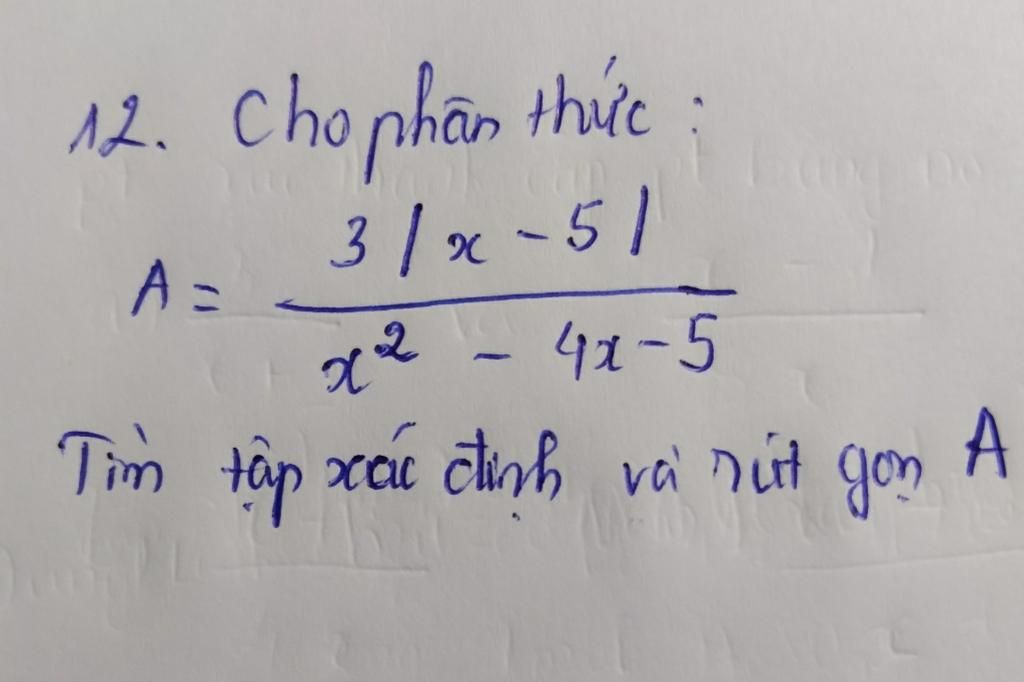 12. Cho phân thức :
A = 3|x - 5| / x² - 4x - 5
Tìm tập xác định và rút gọn A